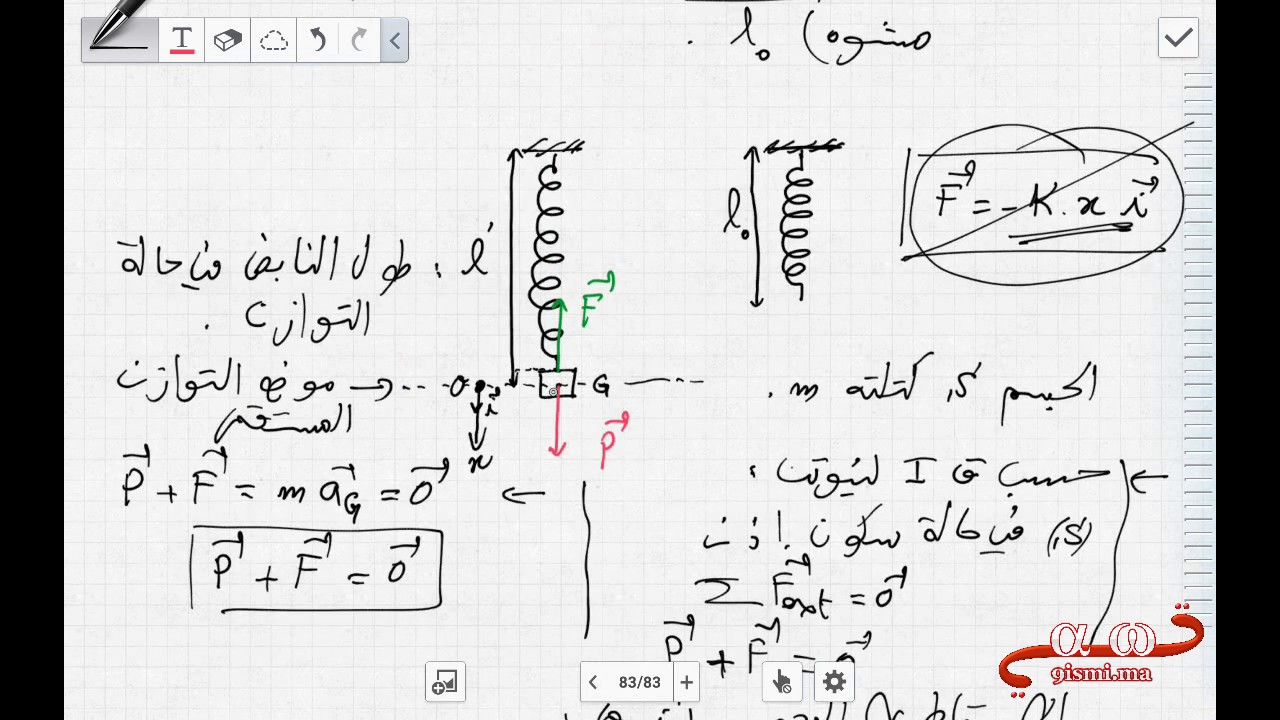 مشوه) l₀ .
l₀
F⃗ = -K.x i⃗
l : طول النابض في حالة
التوازن .
F⃗
O
i⃗
x
G
P⃗
موضع التوازن
المستقر
الجسم S، كتلته m .
P⃗ + F⃗ = m a⃗G = 0⃗
P⃗ + F⃗ = 0⃗
حسب ق I لنيوتن :
(S) في حالة سكون إذن
Σ F⃗ext = 0⃗
P⃗ + F⃗ = 0⃗
83/83
T
α ω ق
gismi.ma